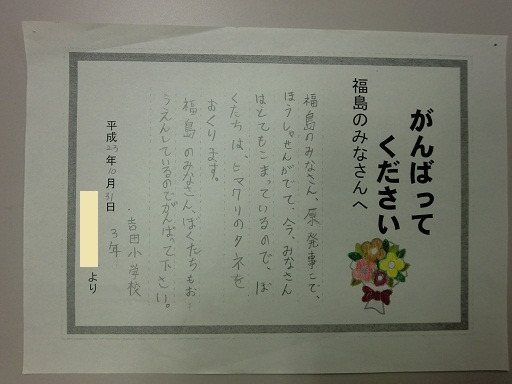 がんばって
ください
福島のみなさんへ
福島のみなさん、原発事こで、
ほうしゃせんがでて、今、みなさん
はとてもこまっているので、ぼ
くたちは、ヒマワリのタネを
おくります。
福島のみなさん、ぼくたちもお
うえんしているのでがんばって下さい。
平成23年10月31日
吉田小学校
3年
より